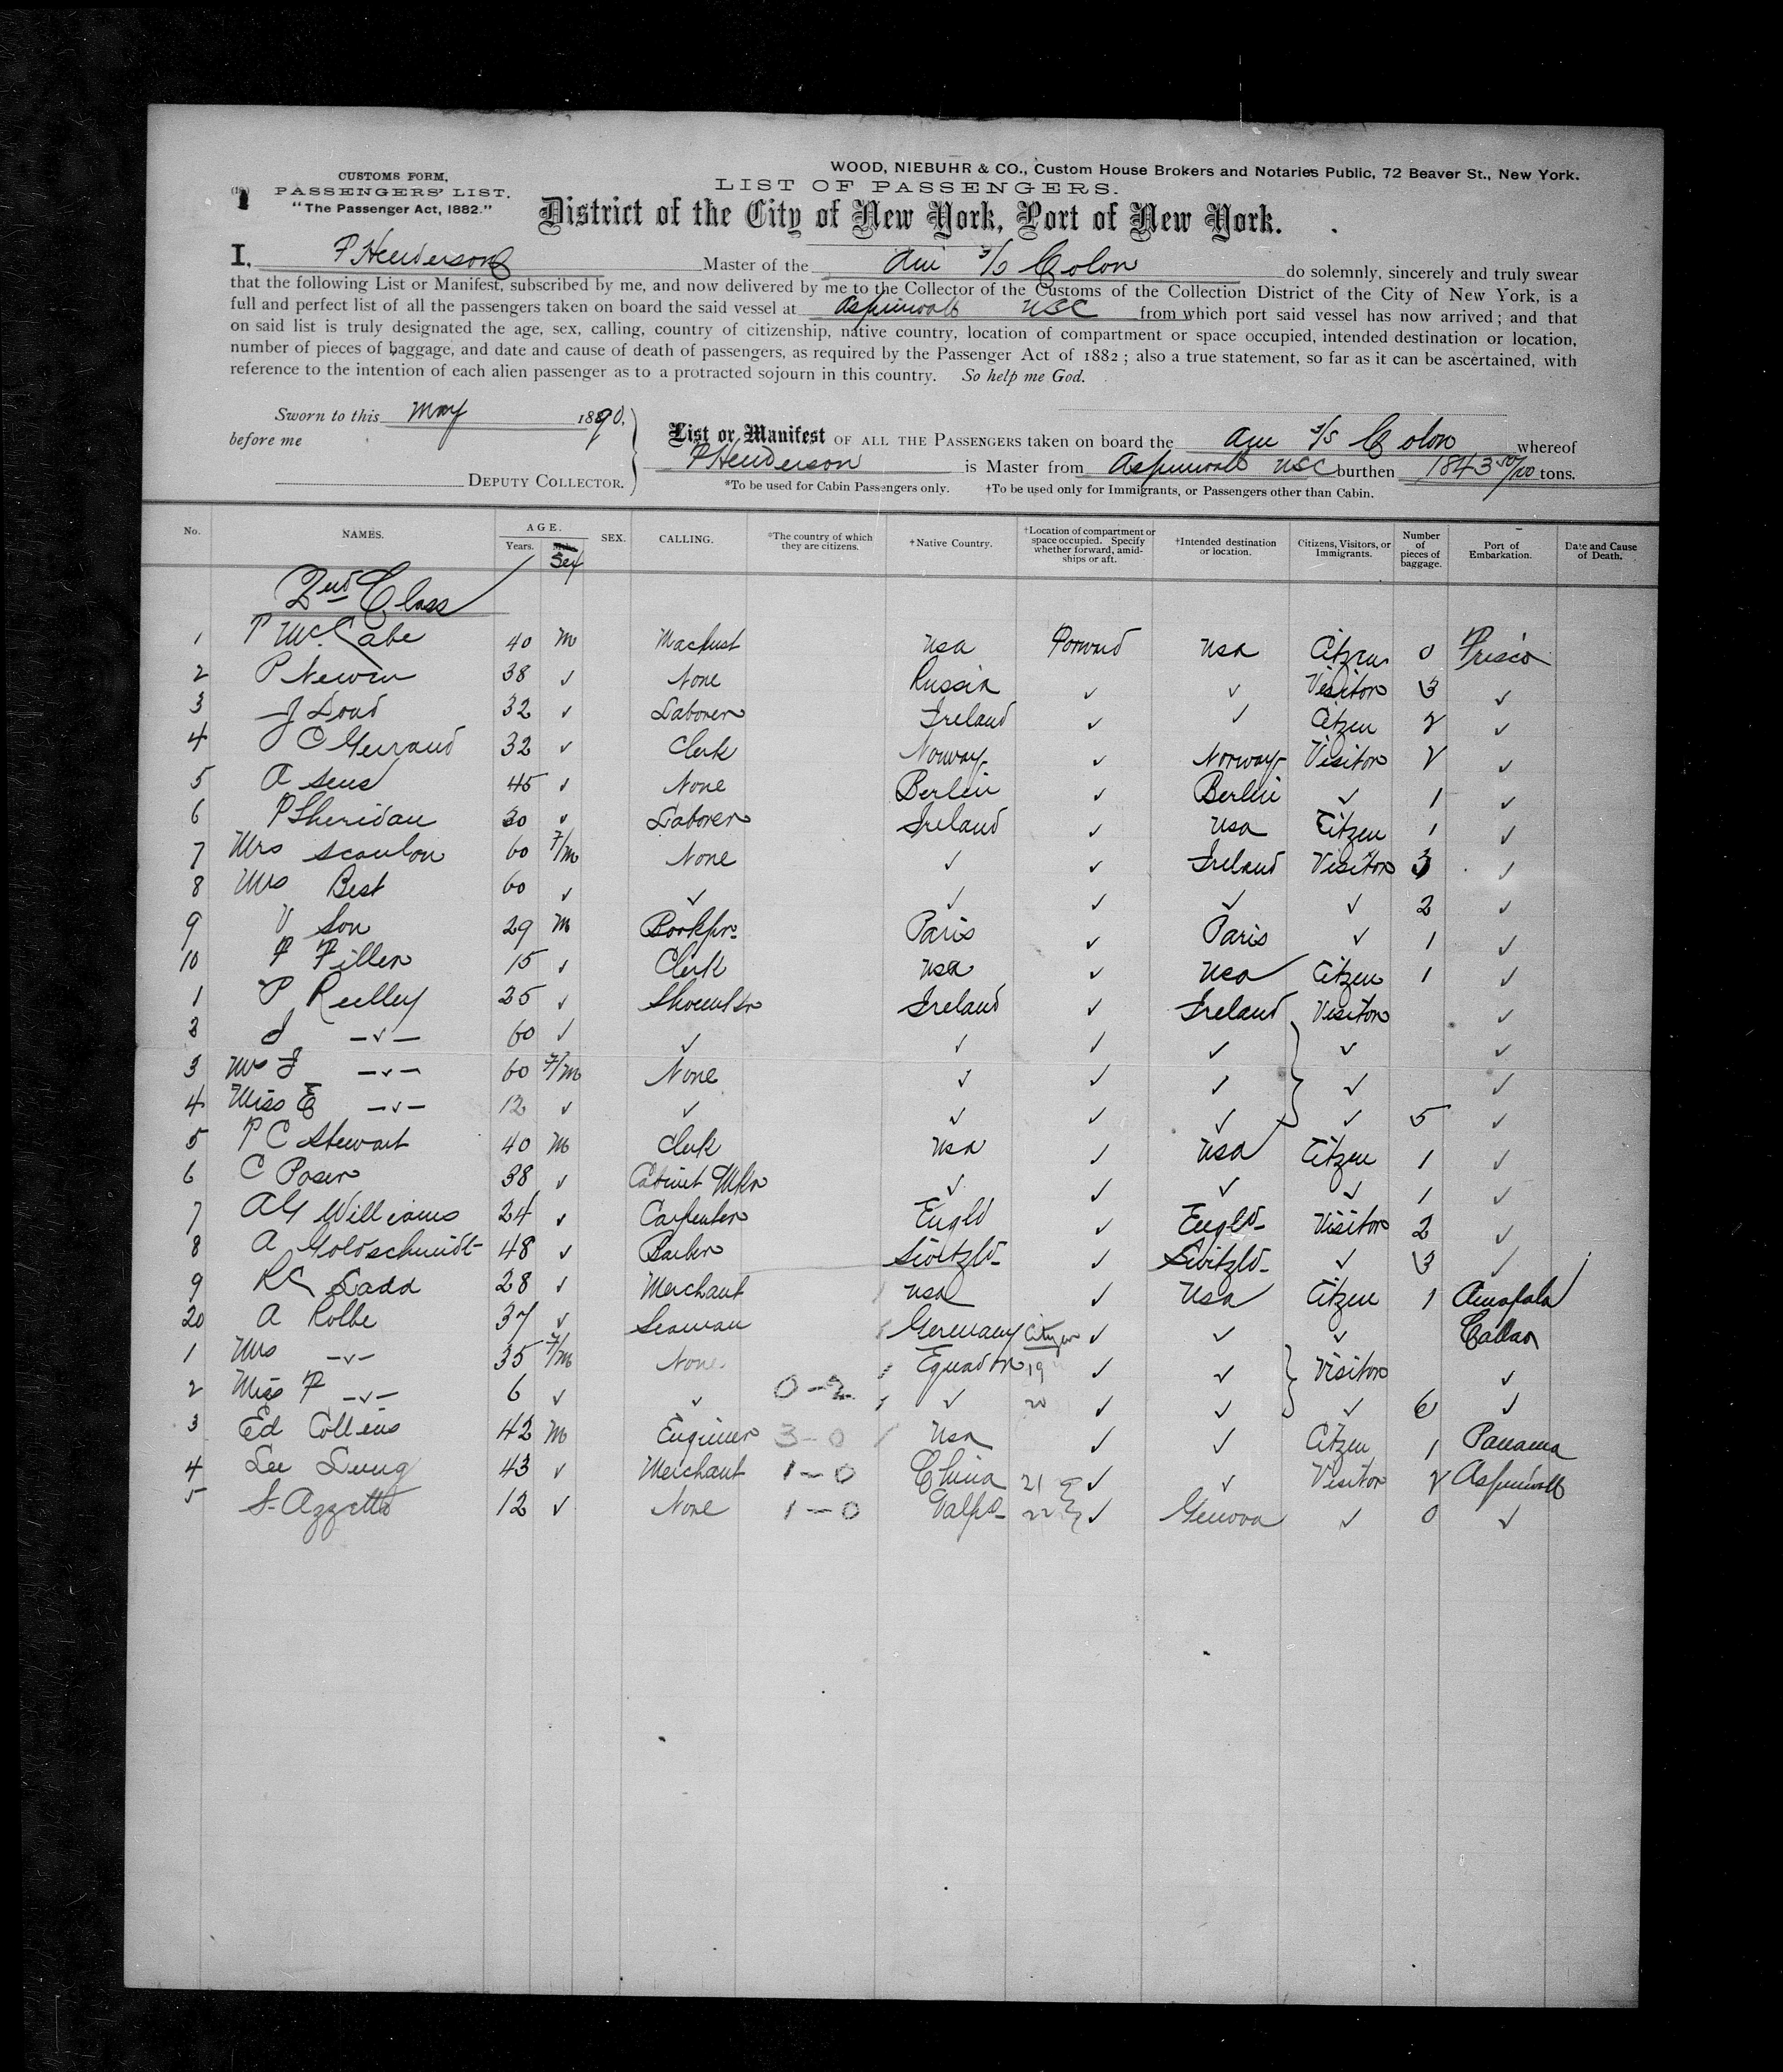 WOOD, NIEBUHR & CO., Custom House Brokers and Notaries Public, 72 Beaver St., New York.
CUSTOMS FORM,
PASSENGERS' LIST.
"The Passenger Act, 1882."
LIST OF PASSENGERS.
District of the City of New York, Port of New York.
I, P Henderson Master of the Am S/S Colon do solemnly, sincerely and truly swear
that the following List or Manifest, subscribed by me, and now delivered by me to the Collector of the Customs of the Collection District of the City of New York, is a
full and perfect list of all the passengers taken on board the said vessel at Aspinwall USC from which port said vessel has now arrived; and that
on said list is truly designated the age, sex, calling, country of citizenship, native country, location of compartment or space occupied, intended destination or location,
number of pieces of baggage, and date and cause of death of passengers, as required by the Passenger Act of 1882; also a true statement, so far as it can be ascertained, with
reference to the intention of each alien passenger as to a protracted sojourn in this country. So help me God.
Sworn to this May 1890.
before me
DEPUTY COLLECTOR.
List or Manifest OF ALL THE PASSENGERS taken on board the Am S/S Colon whereof
P Henderson is Master from Aspinwall USC burthen 1843 50/100 tons.
*To be used for Cabin Passengers only. †To be used only for Immigrants, or Passengers other than Cabin.
No. NAMES. AGE. Years. Sex SEX. CALLING. *The country of which they are citizens. †Native Country. †Location of compartment or space occupied. Specify whether forward, amid-ships or aft. †Intended destination or location. Citizens, Visitors, or Immigrants. Number of pieces of baggage. Port of Embarkation. Date and Cause of Death.
2nd Class
1 P McCabe 40 m Machust USA Forward USA Citizen 0 Frisco
2 P Newin 38 ✓ None Russia ✓ ✓ Visitor 3 ✓
3 J Doud 32 ✓ Laborer Ireland ✓ ✓ Citzen 2 ✓
4 J C Gerraud 32 ✓ Clerk Norway ✓ Norway Visitor 2 ✓
5 A Seus 45 ✓ None Berlin ✓ Berlin ✓ 1 ✓
6 P Sheridan 30 ✓ Laborer Ireland ✓ USA Citzen 1 ✓
7 Mrs Scanlon 60 F/m None ✓ ✓ Ireland Visitor 3 ✓
8 Mrs Best 60 ✓ ✓ ✓ ✓ ✓ ✓ 2 ✓
9 V Son 29 m Bookpr. Paris ✓ Paris ✓ 1 ✓
10 F Filler 15 ✓ Clerk USA ✓ USA Citzen 1 ✓
1 P Reilley 25 ✓ Shoemkr Ireland ✓ Ireland Visitor ✓
2 J -✓- 60 ✓ ✓ ✓ ✓ ✓ ✓ ✓
3 Mrs J -✓- 60 F/m None ✓ ✓ ✓ ✓ ✓
4 Miss E -✓- 12 ✓ ✓ ✓ ✓ ✓ ✓ 5 ✓
5 P C Stewart 40 m Clerk USA ✓ USA Citzen 1 ✓
6 C Poser 38 ✓ Cabinet Mkr ✓ ✓ ✓ ✓ 1 ✓
7 A G Williams 24 ✓ Carpenter Engld ✓ Engld- Visitor 2 ✓
8 A Goldschmidt 48 ✓ Barber Switzld- ✓ Switzld- ✓ 3 ✓
9 R C Ladd 28 ✓ Merchant USA ✓ USA Citzen 1 Amapala
20 A Kolbe 37 ✓ Seaman Germany Citizen ✓ ✓ ✓ Callao
1 Mrs -✓- 35 F/m None Equador 19 ✓ ✓ Visitor ✓
2 Miss F -✓- 6 ✓ ✓ 0-2 ✓ 20 ✓ ✓ ✓ 6 ✓
3 Ed Collins 42 m Enginer 3-0 USA ✓ ✓ Citzen 1 Panama
4 Lee Lung 43 ✓ Merchant 1-0 China 21 ✓ ✓ Visitor 2 Aspinwall
5 S. Azzetto 12 ✓ None 1-0 Valpo- 22 ✓ Genova ✓ 0 ✓